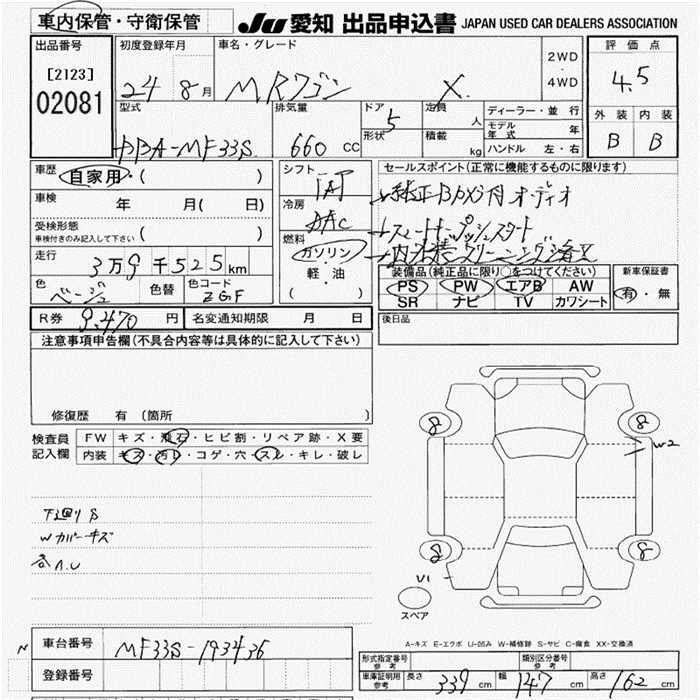 車内保管・守衛保管
JU 愛知 出品申込書 JAPAN USED CAR DEALERS ASSOCIATION
出品番号
[2123]
02081
初度登録年月
24 8 月
車名・グレード
MRワゴン X
2WD
・
4WD
評価点
4.5
外装 内装
B B
型式
DBA-MF33S
排気量
660 cc
ドア 5
形状
定員 人
積載 kg
ディーラー・並行
モデル年式 年
ハンドル 左・右
車歴
自家用・( )
車検 年 月( 日)
受検形態
車検付きのみ記入して下さい ( )
走行
3万9千525km
色 ベージュ
色替
色コード ZGF
シフト
IAT
冷房
AAC
燃料
ガソリン
軽・油
( )
セールスポイント(正常に機能するものに限ります)
純正 オーディオ
スマートキープッシュスタート
内外装クリーニング済
装備品(純正品に限り○をつけてください)
PS PW エアB AW
SR ナビ TV カワシート
新車保証書
有・無
R券 9.470 円
名変通知期限 月 日
後日品
注意事項申告欄(不具合内容等は具体的に記入して下さい)
修復歴 有(箇所 )
検査員
記入欄
FW キズ・飛石・ヒビ割・リペア跡・X要
内装 キズ・汚レ・コゲ・穴・スレ・キレ・破レ
下廻りS
Wカバーキズ
各A.U
8 8
W2
8 8
U1
スペア
A-キズ E-エクボ U-凹み W-補修跡 S-サビ C-腐食 XX-交換済
N
車台番号 MF33S-193436
登録番号
形式指定番号
参考
類別区分番号
参考
車庫証明用
参考
長さ 339 cm 幅 147 cm 高さ 162 cm